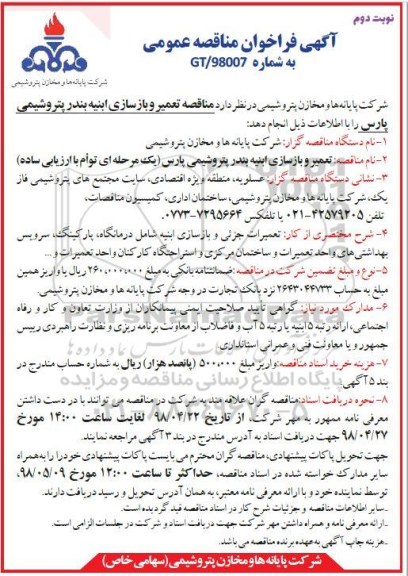 نوبت دوم
آگهی فراخوان مناقصه عمومی
به شماره GT/98007
شرکت پایانه‌ها و مخازن پتروشیمی
شرکت پایانه‌ها و مخازن پتروشیمی در نظر دارد مناقصه تعمیر و بازسازی ابنیه بندر پتروشیمی
پارس را با اطلاعات ذیل انجام دهد:
۱- نام دستگاه مناقصه گزار: شرکت پایانه ها و مخازن پتروشیمی
۲- نام مناقصه: تعمیر و بازسازی ابنیه بندر پتروشیمی پارس (یک مرحله ای توأم با ارزیابی ساده)
۳- نشانی دستگاه مناقصه گزار: عسلویه، منطقه ویژه اقتصادی، سایت مجتمع های پتروشیمی فاز
یک، شرکت پایانه‌ها و مخازن پتروشیمی، ساختمان اداری، کمیسیون مناقصات،
تلفن ۴۲۵۷۹۲۰۵-۰۲۱ یا تلفکس ۷۲۹۵۶۶۴-۰۷۷۳.
۴- شرح مختصری از کار: تعمیرات جزئی و بازسازی ابنیه شامل درمانگاه، پارکینگ، سرویس
بهداشتی‌های واحد تعمیرات و ساختمان مرکزی و استراحتگاه کارکنان واحد تعمیرات و...
۵- نوع و مبلغ تضمین شرکت در مناقصه: ضمانتنامه بانکی به مبلغ ۲۶۰,۰۰۰,۰۰۰ ریال یا واریز همین
مبلغ به حساب ۲۶۴۳۰۴۴۷۳۳ نزد بانک تجارت در وجه شرکت پایانه ها و مخازن پتروشیمی.
۶- مدارک مورد نیاز: گواهی تایید صلاحیت ایمنی پیمانکاران از وزارت تعاون و کار و رفاه
اجتماعی، ارائه رتبه ۵ ابنیه یا رتبه ۵ آب و فاضلاب از معاونت برنامه ریزی و نظارت راهبردی رییس
جمهور و یا معاونت فنی و عمرانی استانداری
۷- هزینه خرید اسناد مناقصه: واریز مبلغ ۵۰۰,۰۰۰ (پانصد هزار) ریال به شماره حساب مندرج در
بند ۵ آگهی.
۸- نحوه دریافت اسناد: مناقصه گران علاقه مند به شرکت در مناقصه می توانند با در دست داشتن
معرفی نامه ممهور به مهر شرکت، از تاریخ ۹۸/۰۴/۲۲ لغایت ساعت ۱۴:۰۰ مورخ
۹۸/۰۴/۲۷ جهت دریافت اسناد به آدرس مندرج در بند ۳ آگهی مراجعه نمایند.
جهت تحویل پاکات پیشنهادی، مناقصه گران محترم می بایست پاکات پیشنهادی خود را به همراه
سایر مدارک خواسته شده در اسناد مناقصه، حداکثر تا ساعت ۱۲:۰۰ مورخ ۹۸/۰۵/۰۹،
توسط نماینده خود و با ارائه معرفی نامه معتبر، به همان آدرس تحویل و رسید دریافت دارند.
. سایر اطلاعات مناقصه و جزئیات شرح کار در اسناد مناقصه قید گردیده است.
. ارائه معرفی نامه و همراه داشتن مهر شرکت جهت دریافت اسناد و شرکت در جلسات الزامی است.
. هزینه چاپ آگهی به عهده برنده مناقصه می باشد.
شرکت پایانه ها و مخازن پتروشیمی (سهامی خاص)